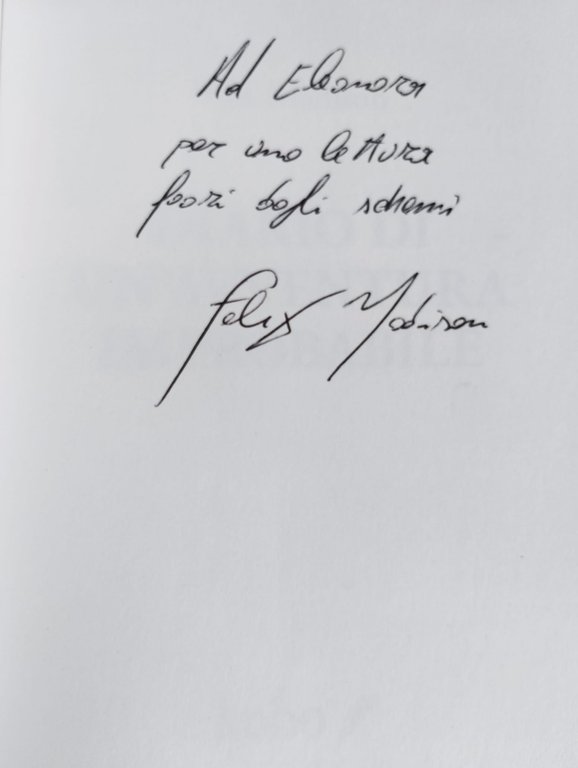 Ad Eleonora
per una lettura
fuori dagli schemi
Felix Madison